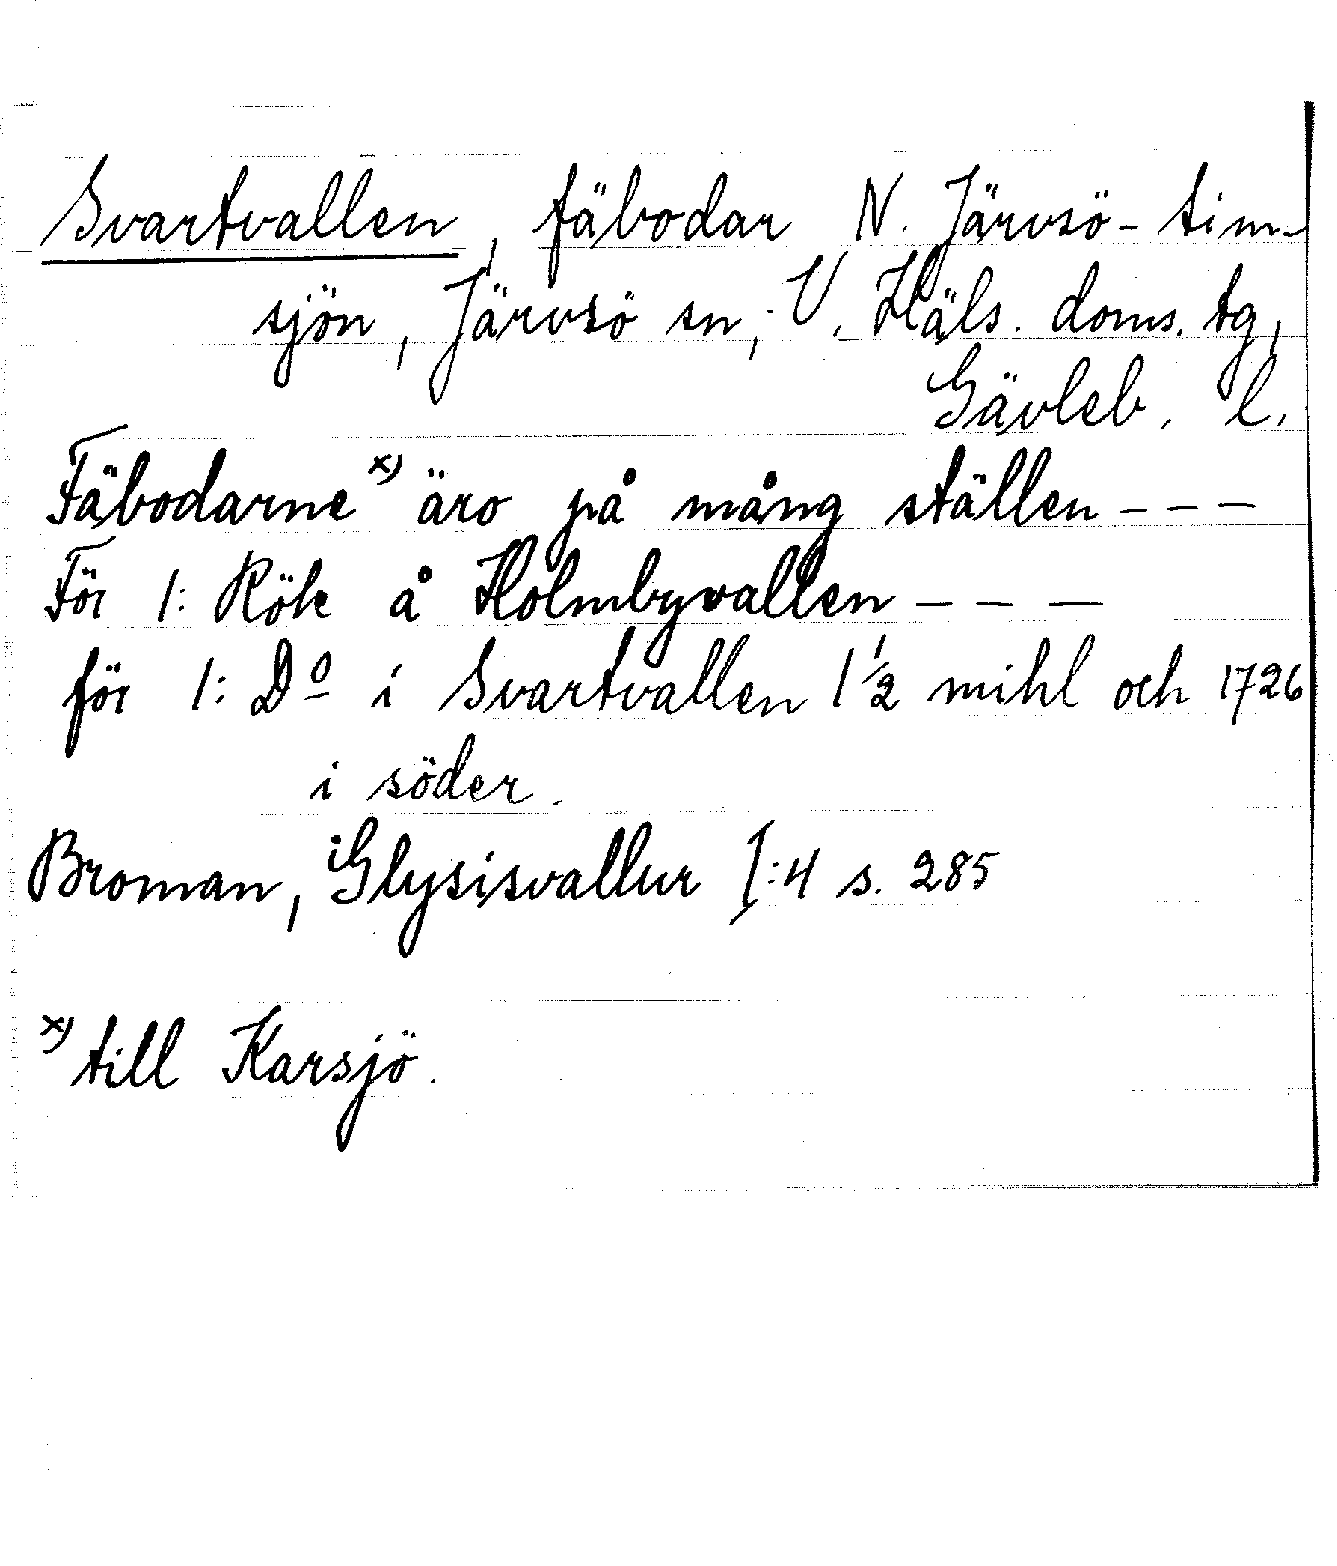 Svartvallen, fäbodar N. Järvsö-tim-
sjön, Järvsö sn, V. Häls. doms. tg,
Gävleb. l.
Fäbodarne x) äro på mång ställen - - -
För 1: Rök å Holmbyvallen - - -
för 1: Do i Svartvallen 1 1/2 mihl och 1726
i söder.
Broman, Glysisvallur I:4 s. 285
x) till Karsjö.